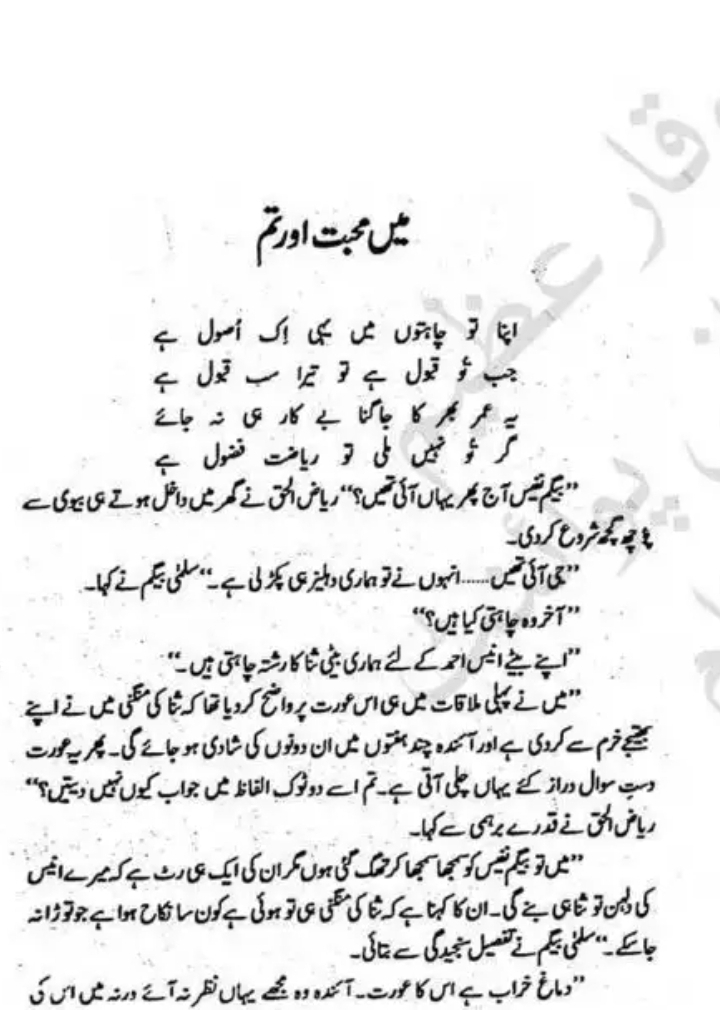 میں محبت اور تم
اپنا تو چاہتوں میں یہی اِک اُصول ہے
جب تُو قبول ہے تو تیرا سب قبول ہے
یہ عمر بھر کا جاگنا بے کار ہی نہ جائے
گر تُو نہیں ملی تو ریاضت فضول ہے
”بیگم نفیس آج پھر یہاں آئی تھیں؟“ ریاض الحق نے گھر میں داخل ہوتے ہی بیوی سے
پوچھ گچھ شروع کردی۔
”جی آئی تھیں......انہوں نے تو ہماری دہلیز ہی پکڑ لی ہے۔“ سلمٰی بیگم نے کہا۔
”آخر وہ چاہتی کیا ہیں؟“
”اپنے بیٹے انیس احمد کے لئے ہماری بیٹی ثنا کا رشتہ چاہتی ہیں۔“
”میں نے پہلی ملاقات میں ہی اس عورت پر واضح کر دیا تھا کہ ثنا کی منگنی میں نے اپنے
بھتیجے خرم سے کر دی ہے اور آئندہ چند ہفتوں میں ان دونوں کی شادی ہو جائے گی۔ پھر یہ عورت
دستِ سوال دراز کئے یہاں چلی آتی ہے۔ تم اسے دوٹوک الفاظ میں جواب کیوں نہیں دیتیں؟“
ریاض الحق نے قدرے برہمی سے کہا۔
”میں تو بیگم نفیس کو سمجھا سمجھا کر تھک گئی ہوں مگر ان کی ایک ہی رٹ ہے کہ میرے انیس
کی دلہن تو ثنا ہی بنے گی۔ ان کا کہنا ہے کہ ثنا کی منگنی ہی تو ہوئی ہے کون سا نکاح ہوا ہے جو توڑا نہ
جا سکے۔“ سلمٰی بیگم نے تفصیل سنجیدگی سے بتائی۔
”دماغ خراب ہے اس کا عورت۔ آئندہ وہ مجھے یہاں نظر نہ آئے ورنہ میں اس کی
وقار عظیم